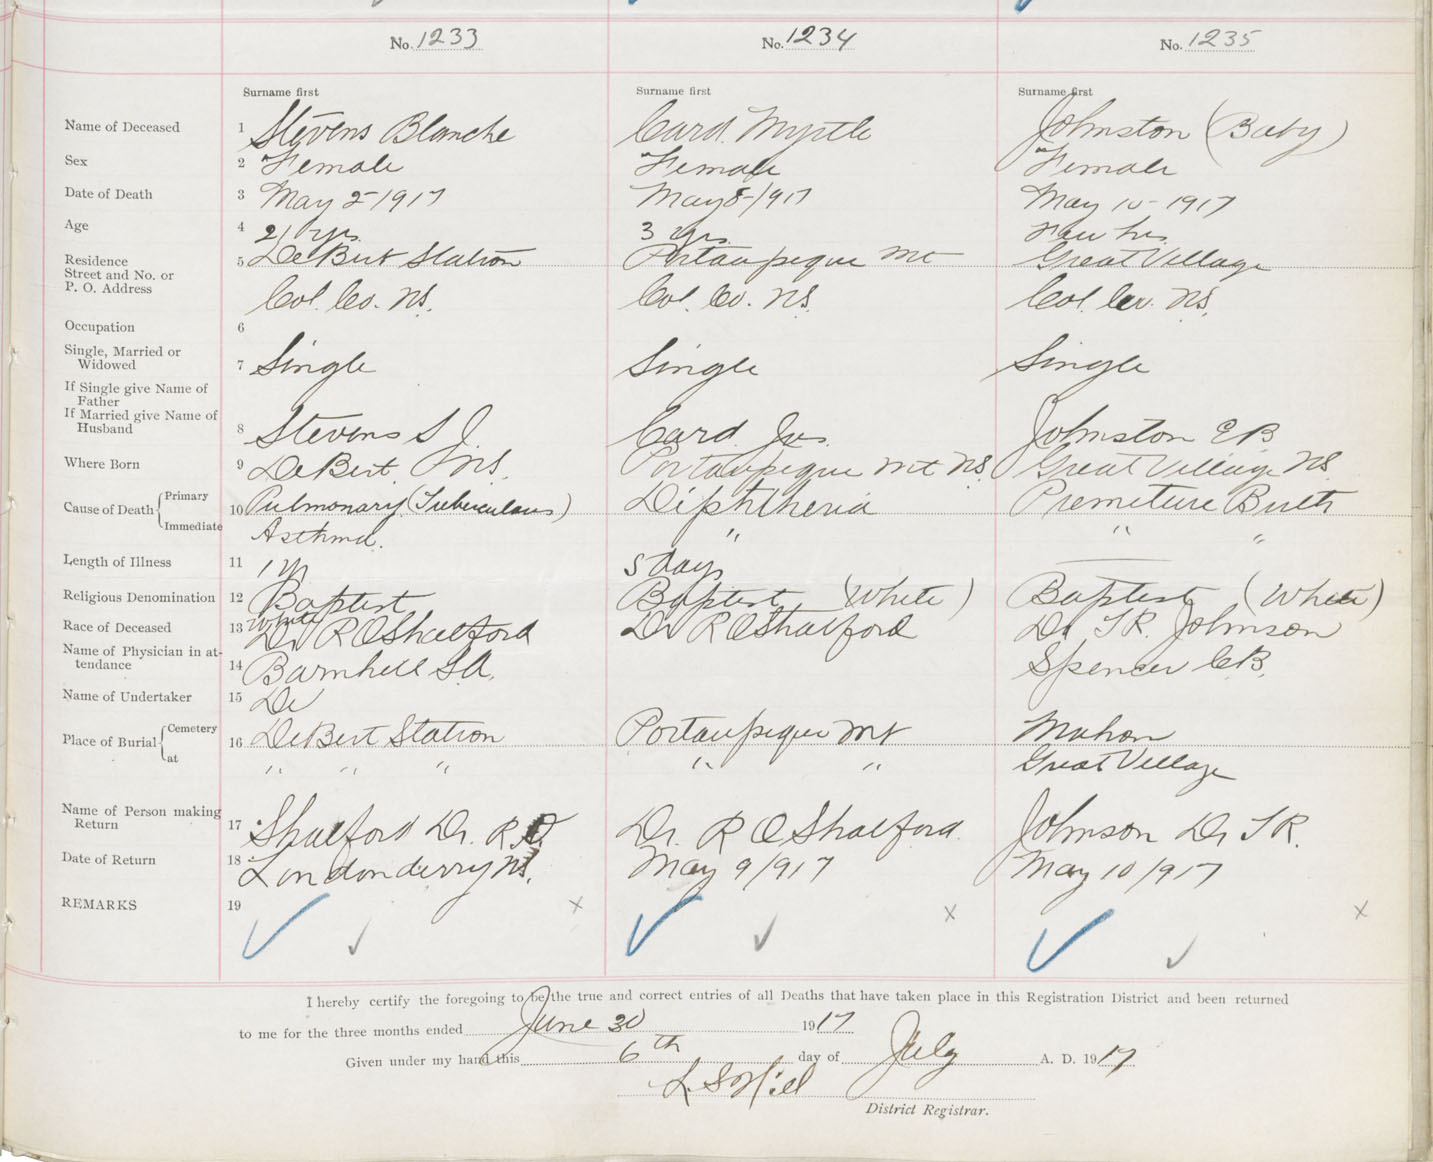 No. 1233 No. 1234 No. 1235
Surname first Surname first Surname first
Name of Deceased 1 Stevens Blanche Card Myrtle Johnston (Baby)
Sex 2 " Female " Female " Female
Date of Death 3 May 2-1917 May 8-1917 May 10-1917
Age 4 21 yrs. 3 yrs. Few hrs.
Residence 5 DeBert Station Portaupique Mt Great Village
Street and No. or
P. O. Address Col. Co. NS. Col. Co. NS. Col. Co. NS.
Occupation 6
Single, Married or
Widowed 7 Single Single Single
If Single give Name of
Father
If Married give Name of
Husband 8 Stevens S J. Card Jas. Johnston E B
Where Born 9 DeBert NS. Portaupique Mt NS Great Village NS
Cause of Death { Primary 10 Pulmonary (Tuberculous) Diphtheria Premeture Birth
Immediate Asthma. " " "
Length of Illness 11 1 yr 5 days
Religious Denomination 12 Baptist Baptist (White) Baptist (White)
White
Race of Deceased 13 Dr R O Shatford Dr R O Shatford Dr T R. Johnson
Name of Physician in at-
tendance 14 Barnhill S A. Spencer C B.
Name of Undertaker 15 De
Place of Burial { Cemetery 16 DeBert Station Portaupique Mt Mahon
at " " " " " Great Village
Name of Person making
Return 17 Shatford Dr. R O Dr. R O Shatford. Johnson Dr T R.
Date of Return 18 Londonderry NS. May 9/1917 May 10/1917
REMARKS 19 x x x
I hereby certify the foregoing to be the true and correct entries of all Deaths that have taken place in this Registration District and been returned
to me for the three months ended June 30 1917
Given under my hand this 6th day of July A. D. 1917
L. S Hill
District Registrar.